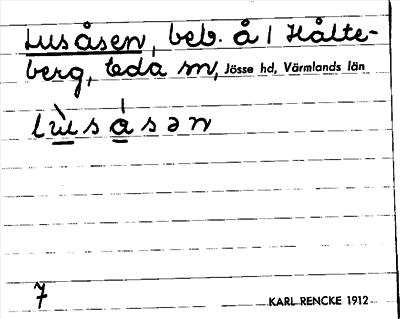 Lusåsen, beb. å 1 Hålte-
berg, Eda sn, Jösse hd, Värmlands län
lùsåsən
7
KARL RENCKE 1912